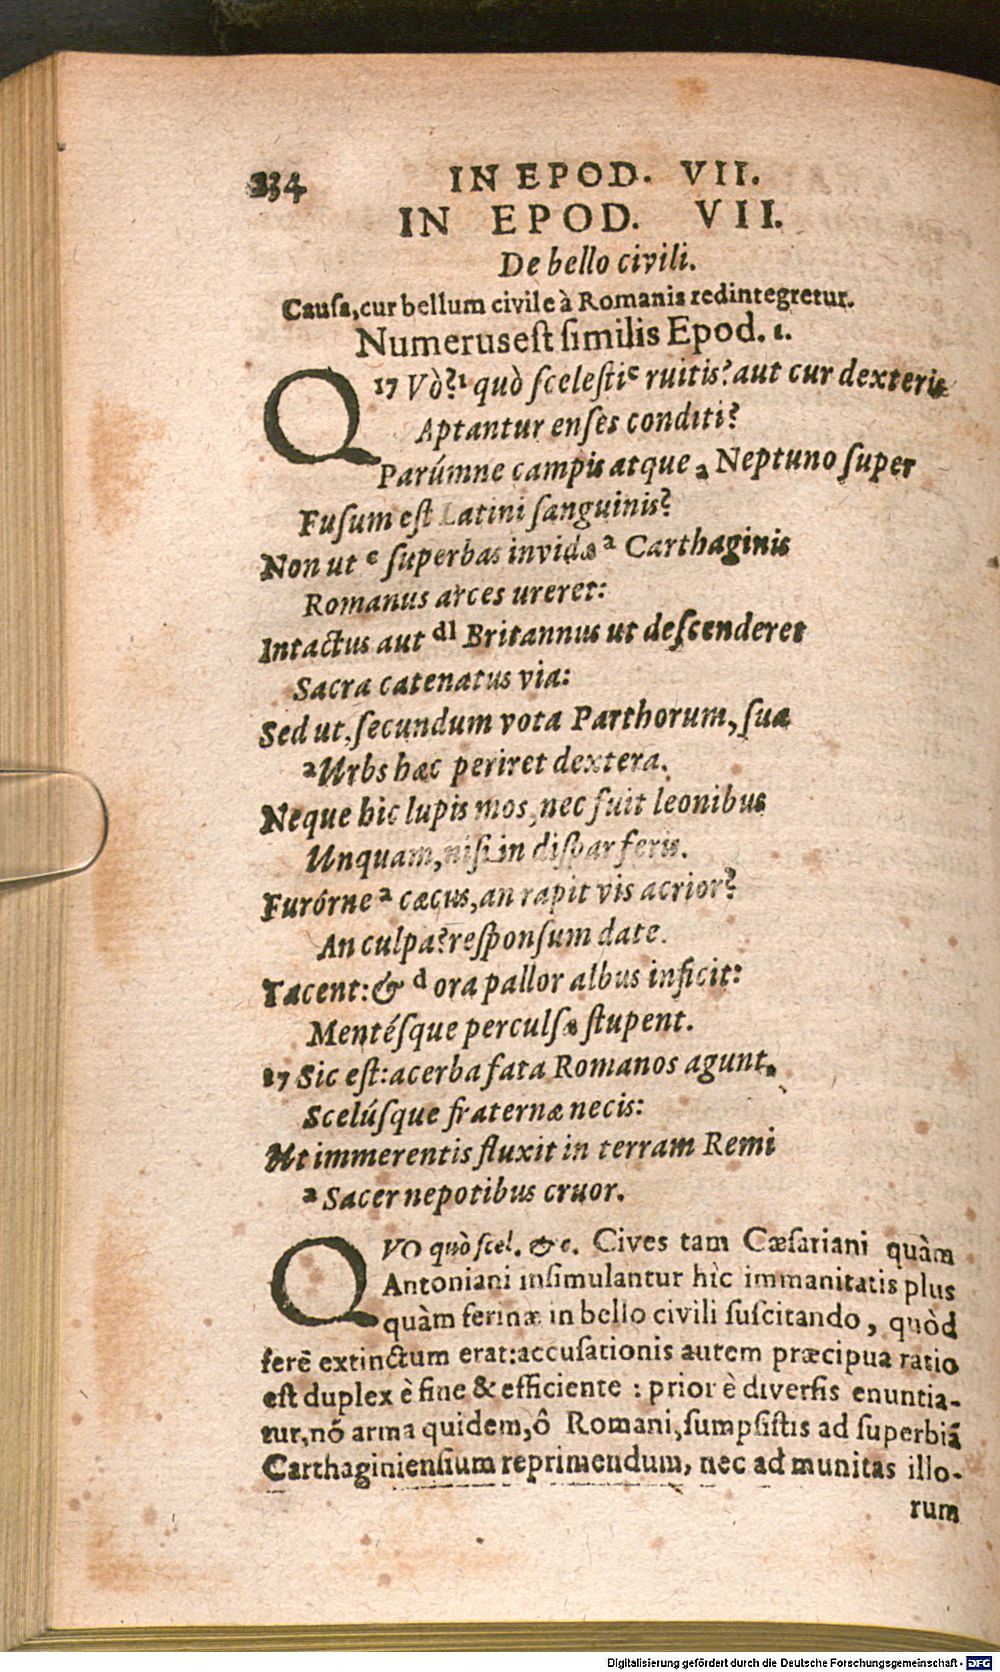 234 IN EPOD. VII.
IN EPOD. VII.
De bello civili.
Cauſa, cur bellum civile à Romanis redintegretur.
Numerus eſt ſimilis Epod. 1.
Q 17 Vò?¹ quò ſceleſtiᶜ ruitis? aut cur dexteris
Aptantur enſes conditi?
Parúmne campis atque ₂ Neptuno ſuper
Fuſum eſt Latini ſanguinis?
Non ut ᵉ ſuperbas invidæ ² Carthaginis
Romanus arces ureret:
Intactus aut ᵈ¹ Britannus ut deſcenderet
Sacra catenatus via:
Sed ut, ſecundum vota Parthorum, ſua
²Urbs hæc periret dextera.
Neque hic lupis mos, nec fuit leonibus
Unquam, niſi in diſpar feris.
Furórne ² cæcus, an rapit vis acrior?
An culpa? reſponſum date.
Tacent: & ᵈ ora pallor albus inficit:
Mentéſque perculſæ ſtupent.
17 Sic eſt: acerba fata Romanos agunt,
Scelúſque fraternæ necis:
Ut immerentis fluxit in terram Remi
²Sacer nepotibus cruor.
QVO quò ſcel. &c. Cives tam Cæſariani quàm
Antoniani inſimulantur hìc immanitatis plus
quàm ferinæ in bello civili ſuſcitando, quòd
ferē extinctum erat: accuſationis autem præcipua ratio
eſt duplex è fine & efficiente: prior è diverſis enuntia-
tur, nō arma quidem, ô Romani, ſumpſiſtis ad ſuperbiā
Carthaginienſium reprimendum, nec ad munitas illo-
rum
Digitalisierung gefördert durch die Deutsche Forschungsgemeinschaft - DFG